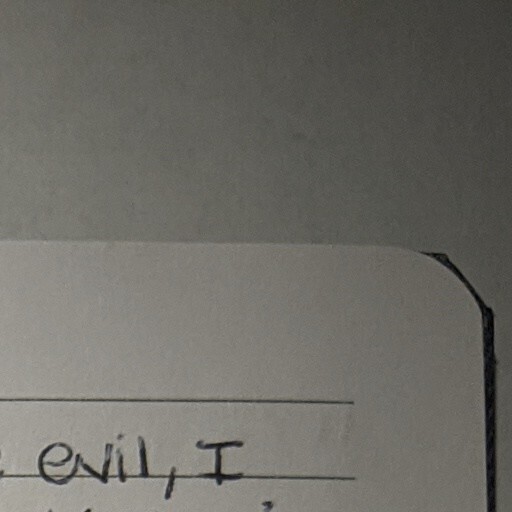 evil, I